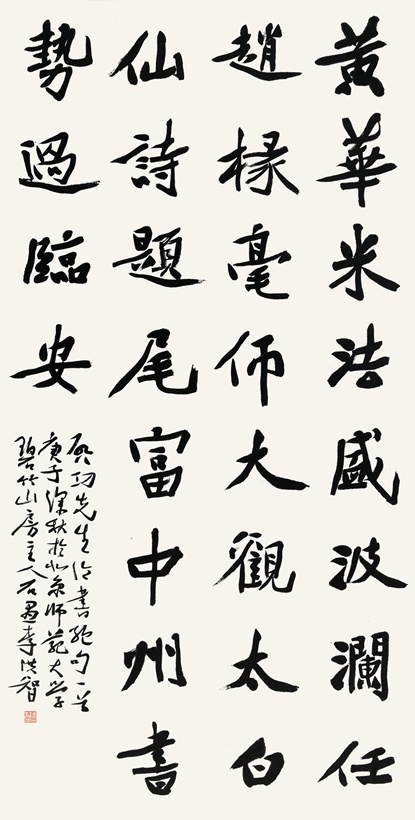 黃華米法盛波瀾任
趙椽毫仰大觀太白
仙詩題尾富中州書
勢過臨安
启功先生论書絕句一首
庚子深秋於北京师範大学
碧竹山房主人石愚李洪智